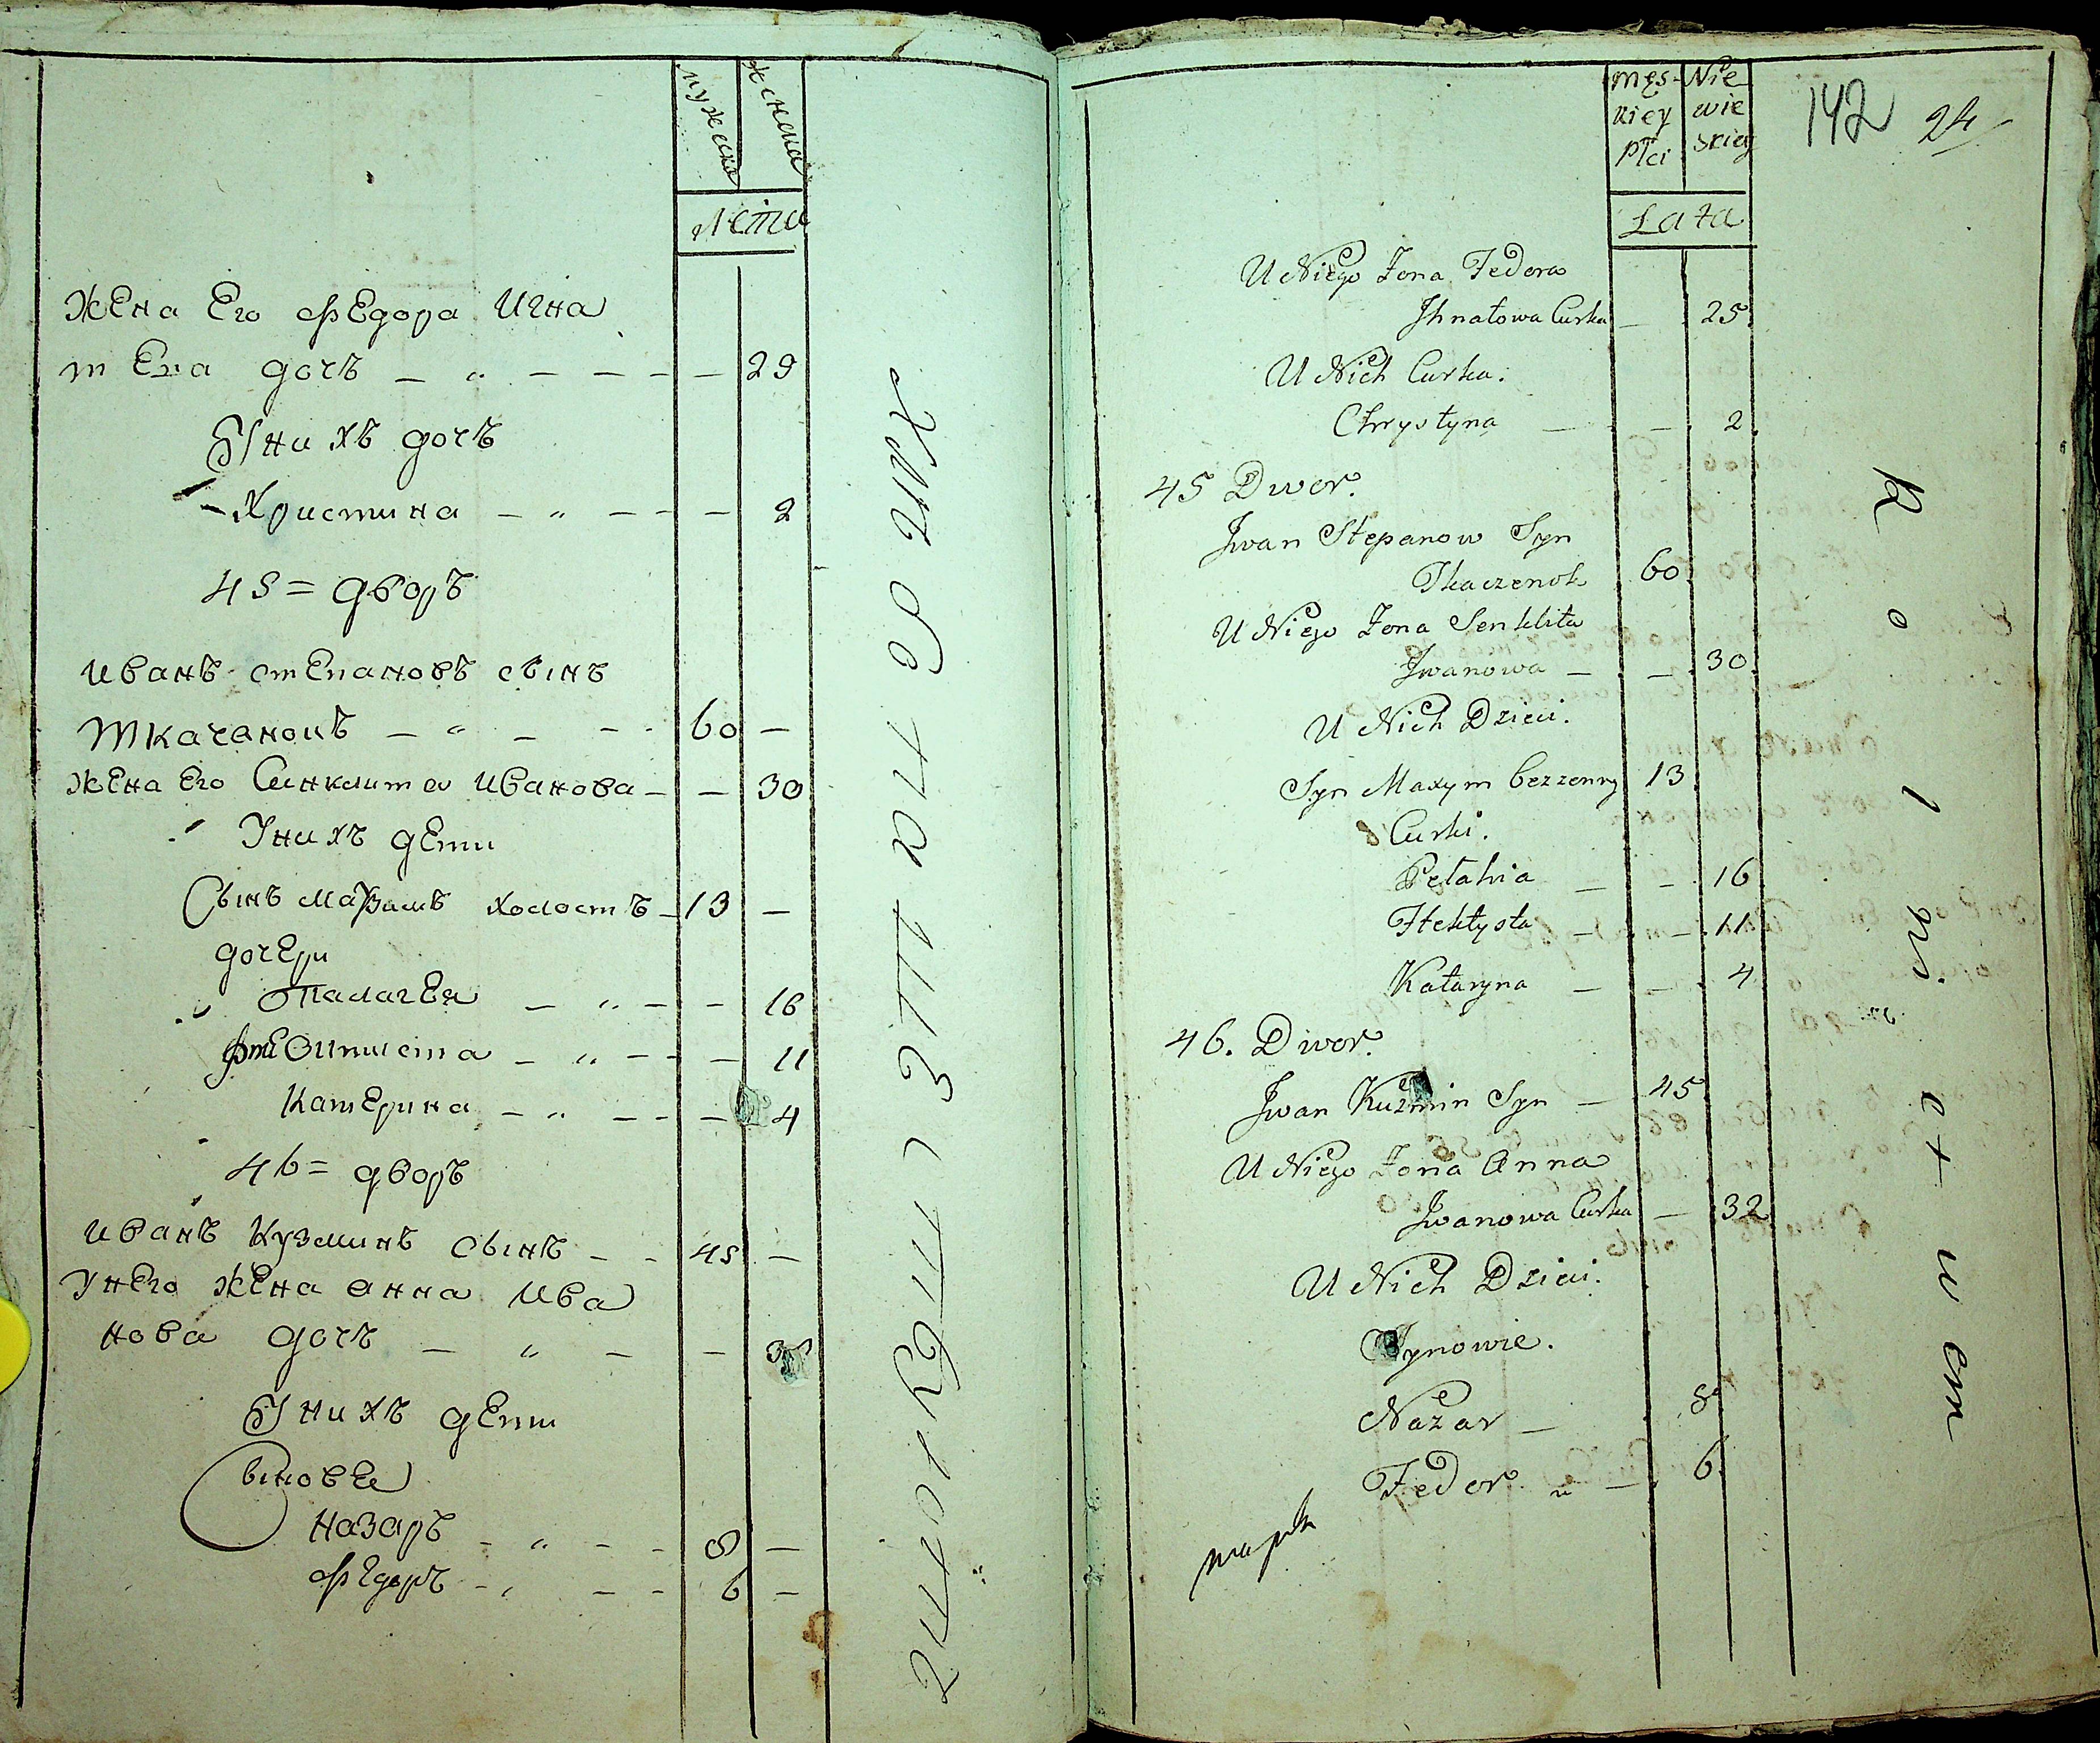 мужеска
женска
Лета
жена Его федора Игна
тЕва дочь 29
У нихъ дочь
Христина 2
45 = дворъ
Иванъ стЕпановъ сынъ
Ткачанокъ 60
жена Его Синклита Иванова 30
У нихъ дЕти
Сынъ Максимъ холостъ 13
дочЕри
Палагея 16
Катерина 4
46 = дворъ
Иванъ Кузминъ сынъ 45
У нЕго жЕна анна Ива
нова дочь
У нихъ дЕти
Сыновья
Назаръ 8
федоръ 6
Męs-
kiey
Płci
Nie
wie
skiey
142 24
Lata
U Niego Zona Fedora
Ihnatowa Curka 25
U Nich Curka.
Chrystyna 2
45 Dwor.
Iwan Stepanow Syn
Tkaczenok 60
U Niego Zona Senklita
Iwanowa 30
U Nich Dzieci.
Syn Maxym bezzenny 13
Curki.
Pelahia 16
Ftektysta 11
Kataryna 4
46. Dwor.
Iwan Kuzmin Syn 45
U Niego Zona Anna
Iwanowa Curka 32
U Nich Dzieci.
Synowie.
Nazar 8
Fedor 6